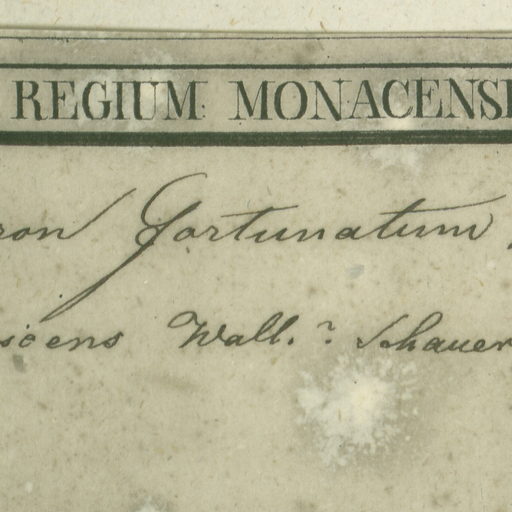 REGIUM MONACENS
ron Fortunatum
scens Wall. ? Schauer